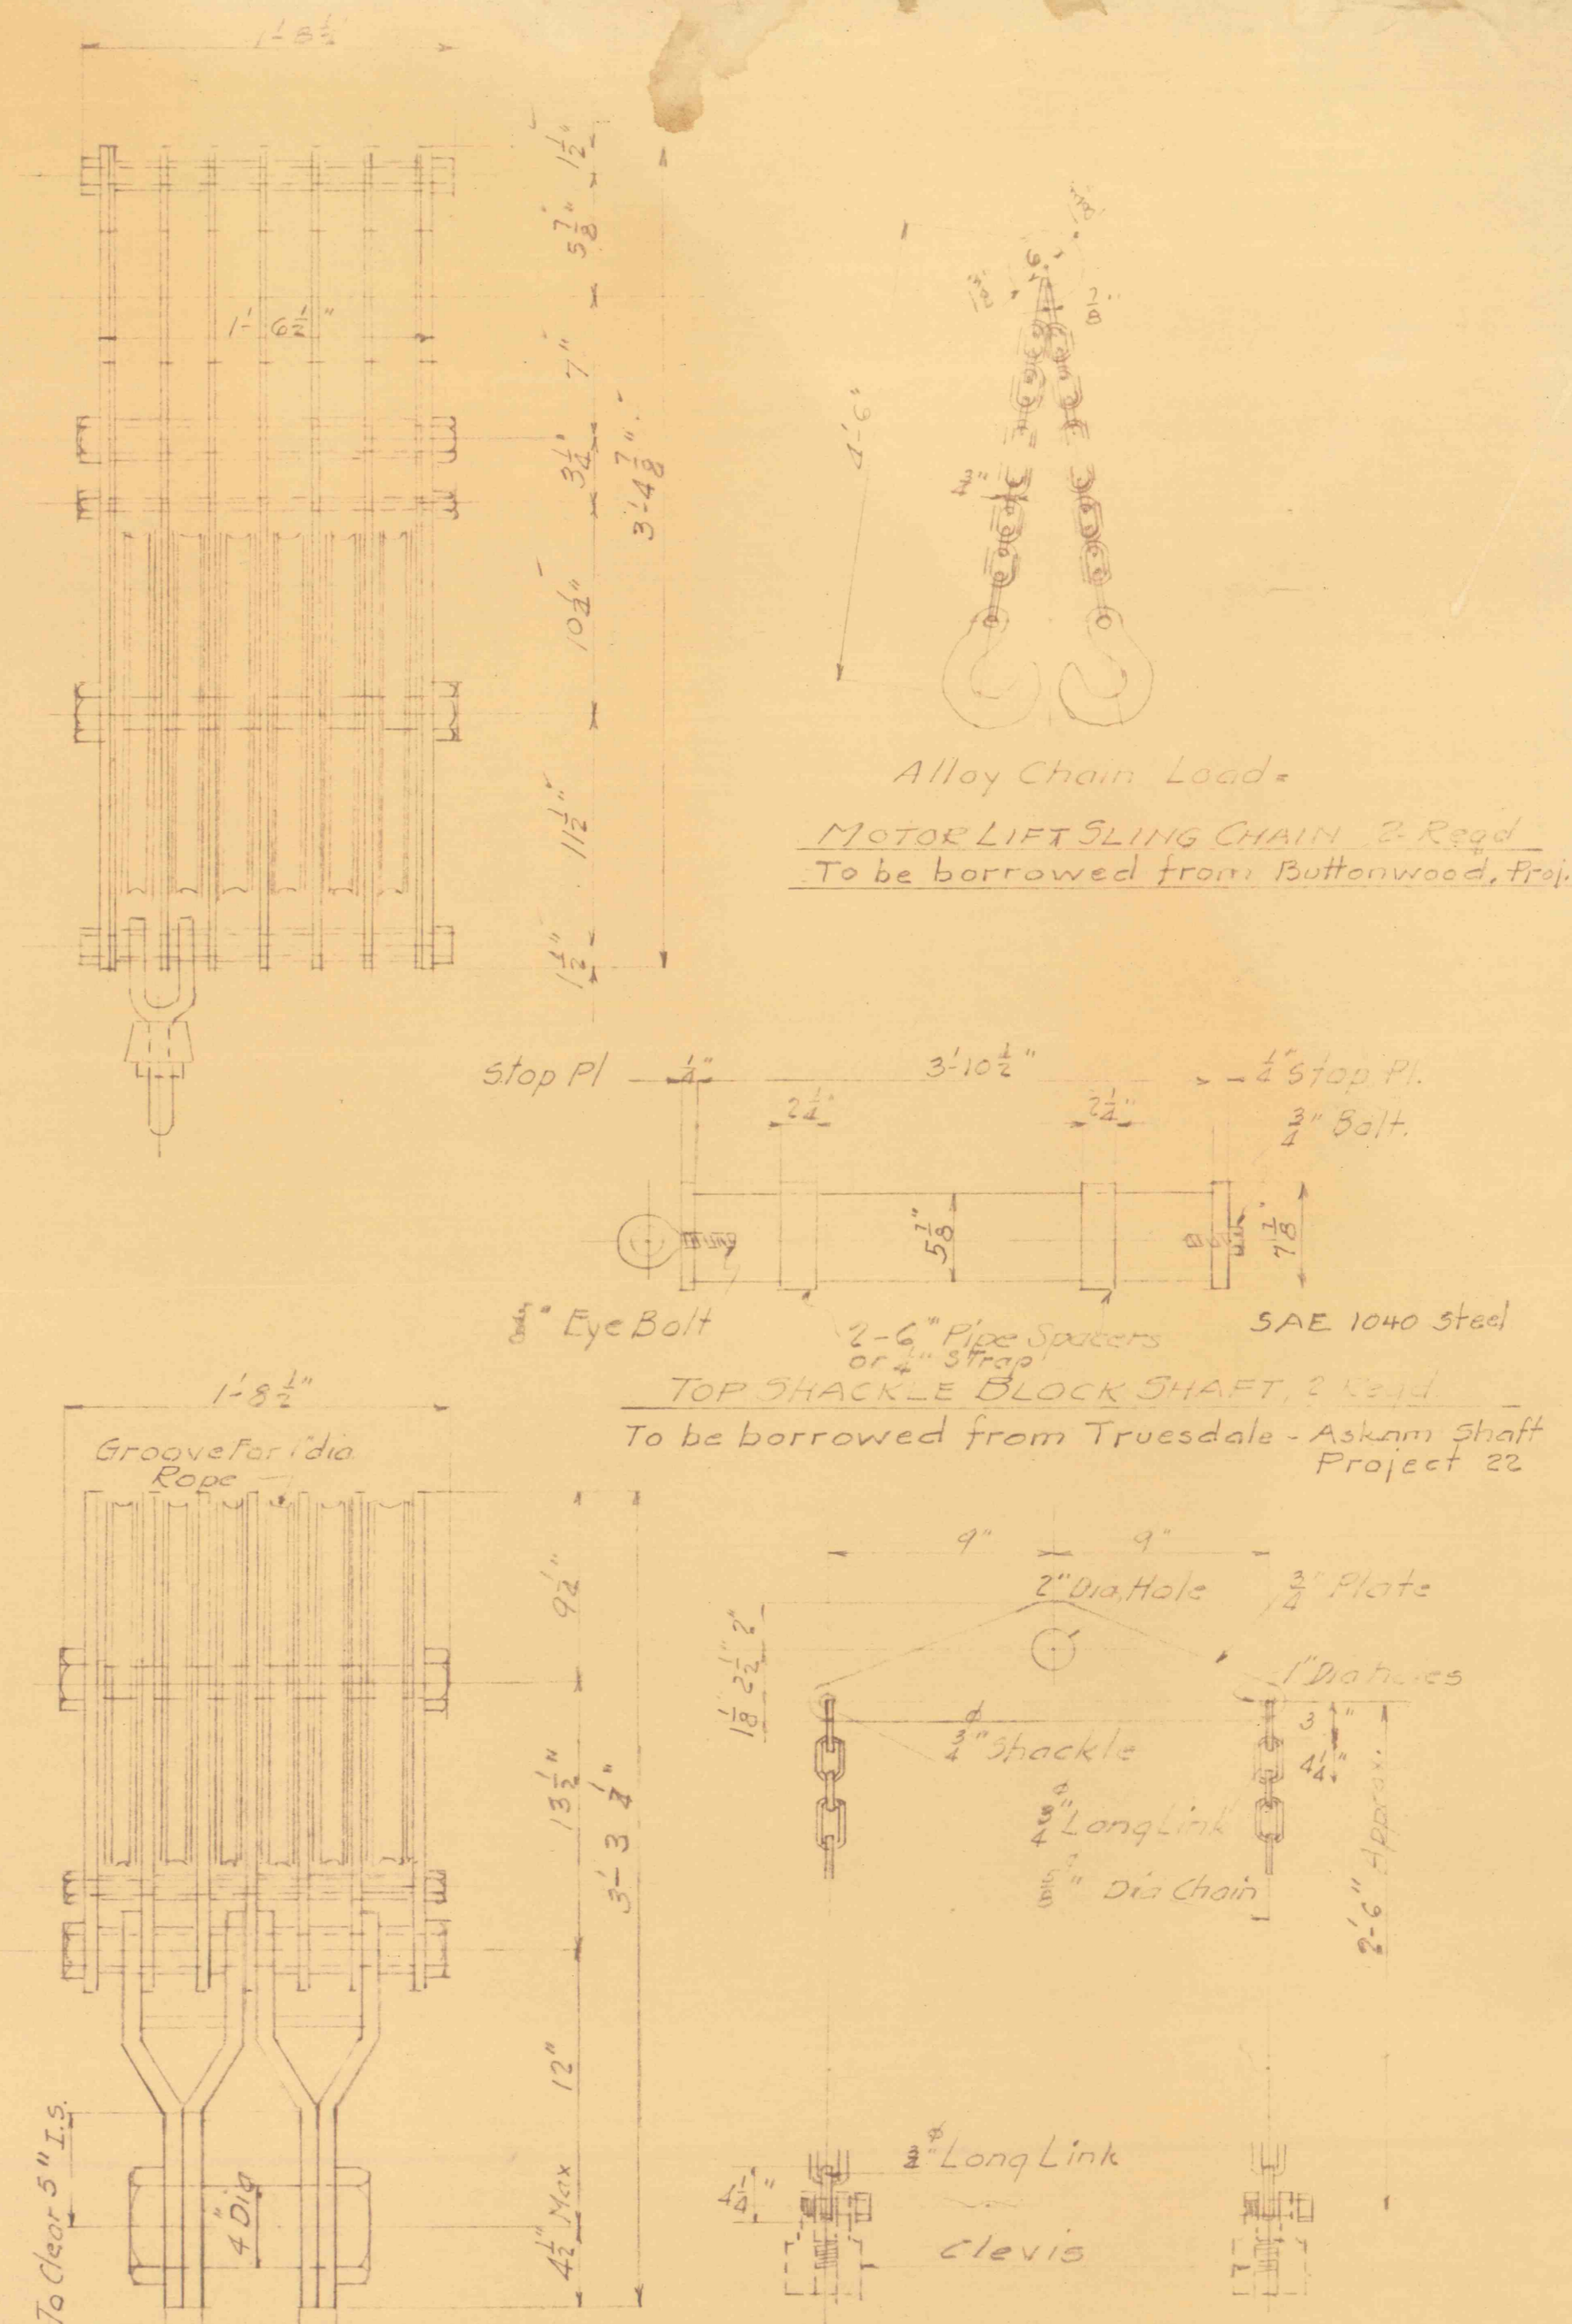 1'-8½"
1½"
5⅞"
1'-6½"
7"
3¼"
3'-4⅞"
10¼"
11½"
1½"
⅞"
4'-6"
¾"
Alloy Chain Load =
MOTOR LIFT SLING CHAIN 2-Reqd
To be borrowed from Buttonwood, Proj.
Stop Pl
¼"
3'-10½"
¼" Stop Pl.
2¼"
2¼"
¾" Bolt.
5⅞"
7⅛"
" Eye Bolt
2-6" Pipe Spacers
or ¼" Strap
SAE 1040 Steel
TOP SHACKLE BLOCK SHAFT, 2 Reqd
To be borrowed from Truesdale - Askam Shaft
Project 22
1'-8½"
Groove For 1" dia
Rope
9¼"
13½"
3'-3¼"
12"
4½" Max
To Clear 5" I.S.
4" Dia
9"
9"
2" Dia. Hole
¾" Plate
2"
2½"
1⅛"
1" Dia holes
¾"ϕ Shackle
3"
4¼"
¾"ϕ Long Link
" Dia Chain
2'-6" Approx.
¾"ϕ Long Link
4¼"
Clevis